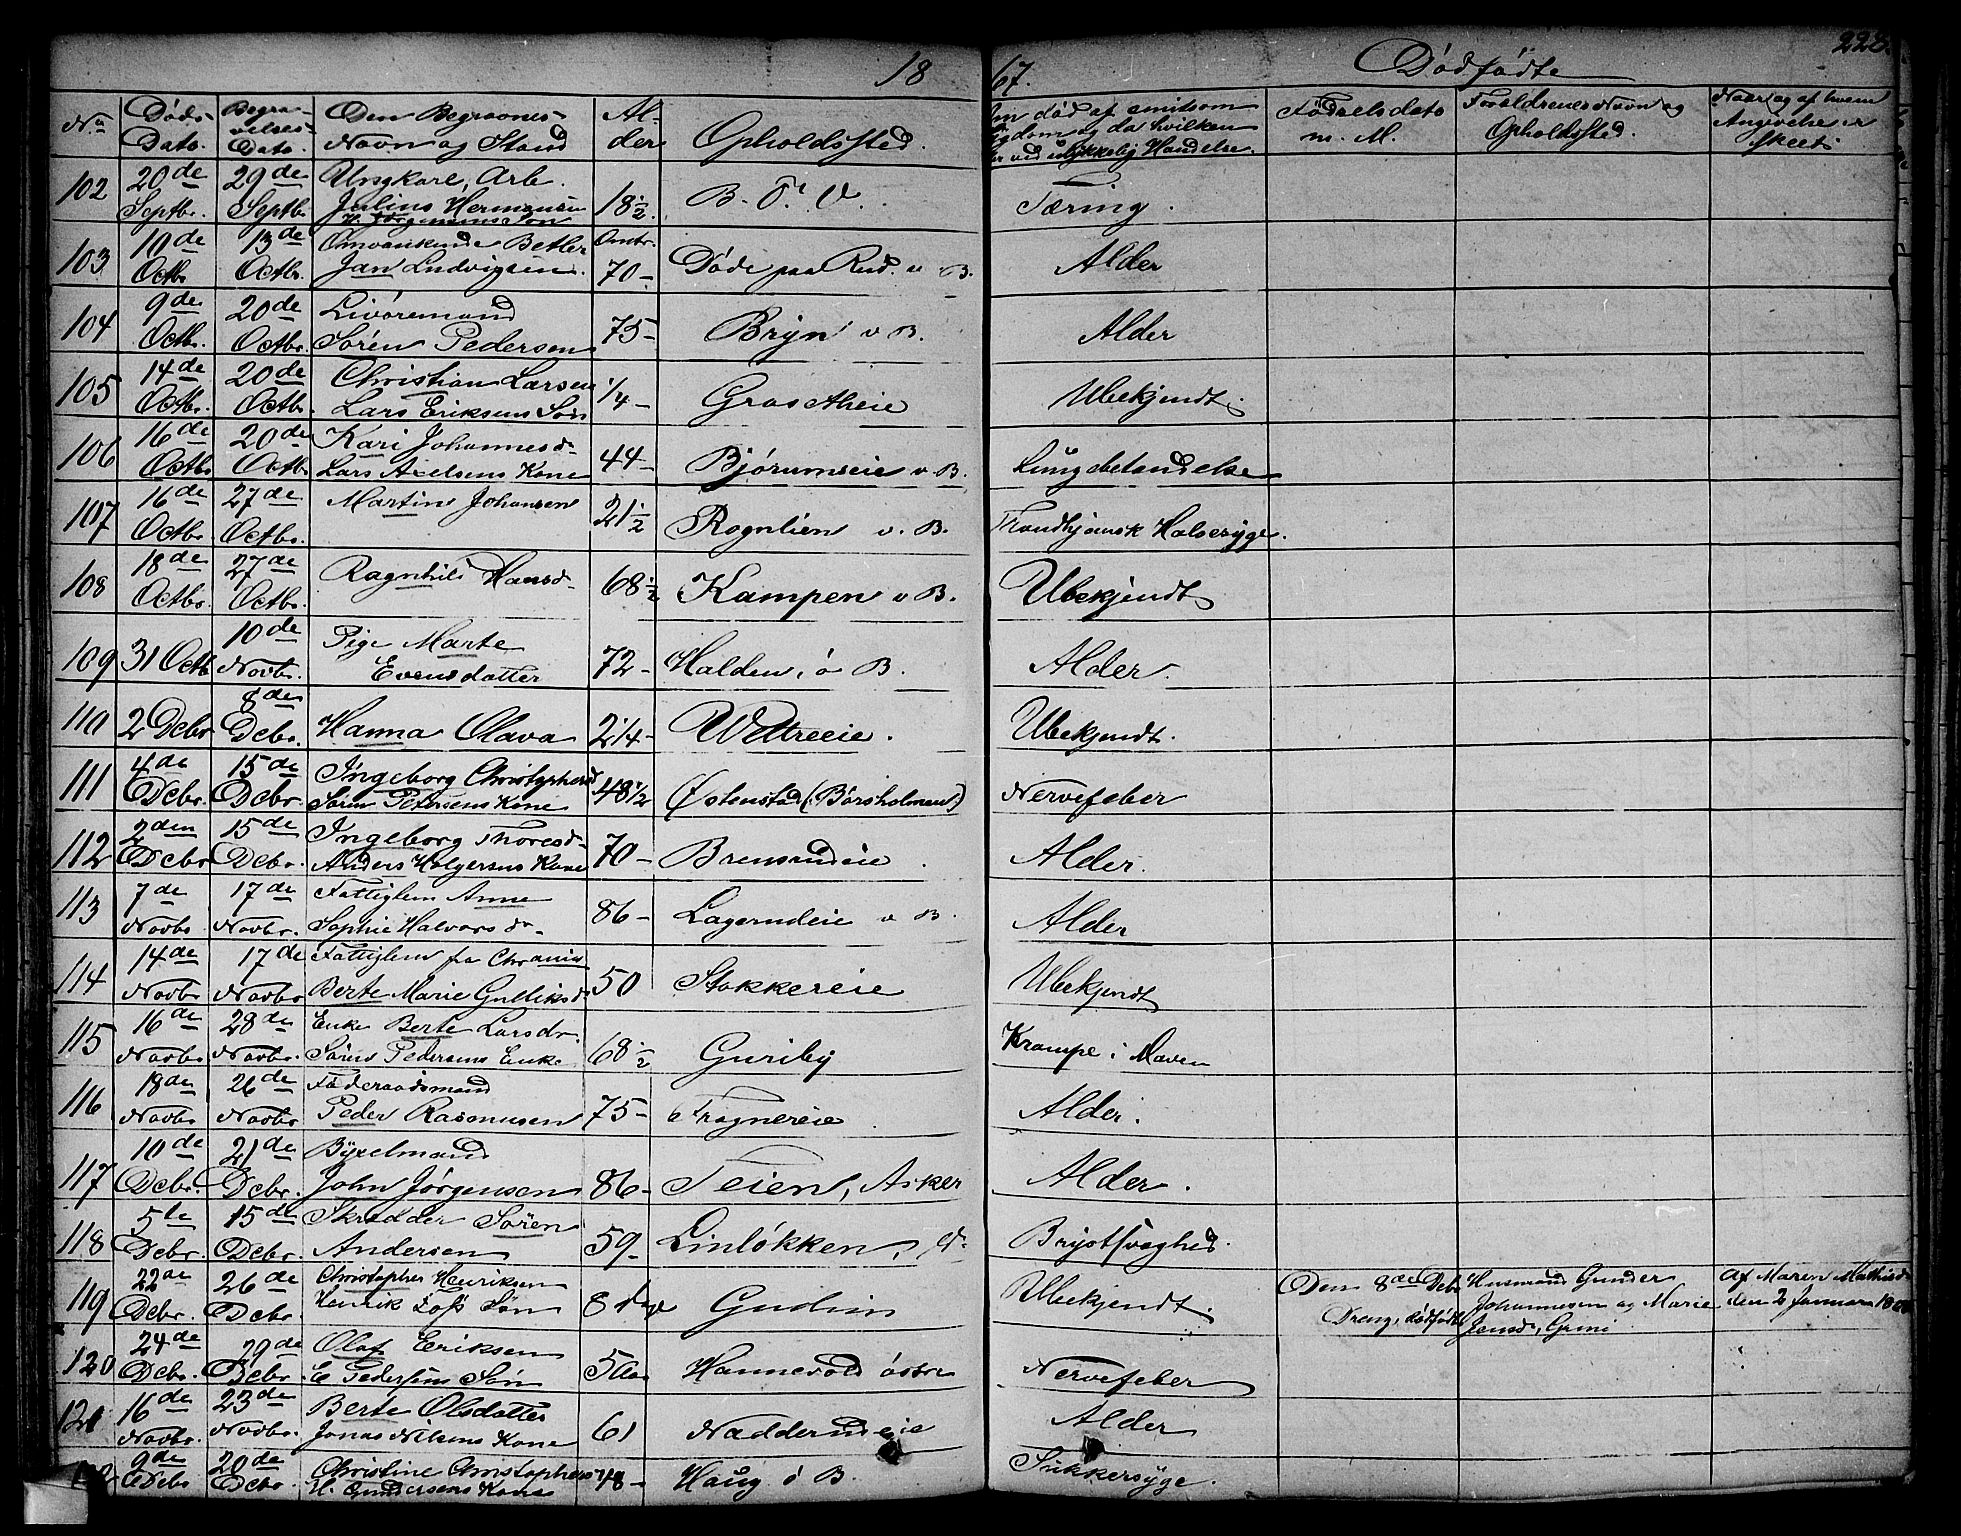 18 67. Dødfødte 228.
No Døds-Dato. Begravelses-Dato. Den Begravnes Navn og Stand Alder Opholdssted. Om død af smitsom Sygdom og da hvilken eller ved ulykkelig Hændelse. Fødselsdato m. M. Forældrenes Navn og Opholdssted. Naar og af hvem Angivelse er skeet.
102 20de Septbr. 29de Septbr Ungkarl, Arb. Julius Hermansen H. Jørgensens Søn 18 1/2. B. V. Tæring.
103 10de Octbr 13de Octbr. Omvankende Betler Jan Ludvigsen. Omtr. 70- Døde paa Rud. v B. Alder
104 9de Octbr. 20de Octbr. Livøremand Søren Pedersen 75- Bryn v B. Alder
105 14de Octbr. 20de Octbr. Christian Larsen Lars Eriksens Søn 1/4- Ubekjendt.
106 16de Octbr 20de Octbr. Kari Johannesdr Lars Axelsens Kone 44- Bjørumseie v B. Lungebetændelse
107 16de Octbr 27de Octbr. Martin Johansen 21 1/2 Rognlien v. B. Trondhjemsk Halssyge.
108 18de Octbr. 27de Octbr. Ragnhild Hansdr 68 1/2 Kampen v B. Ubekjendt
109 31 Octb 10de Novbr. Pige Marte Evensdatter 72- Halden, ø B. Alder.
110 2 Debr 8de Debr. Hanna Olava 2 1/4- Wettreeie. Ubekjendt.
111 4de Debr. 15de Debr. Ingeborg Christophersd Søren Petersens Kone 48 1/2 Østenstad (Børsholmen) Nervefeber
112 2den Debr 15de Debr. Ingeborg Thoresdr Anders Holgersens Kone 70- Brensrudeie Alder.
113 7de Novbr 17de Novbr. Fattiglem Anne Sophie Halvorsdr 86- v B. Alder
114 14de Novbr 17de Novbr Fattiglem fra Chrania Berte Marie Gulliksdr 50 Stokkereie Ubekjendt
115 16de Novbr 28de Novbr. Enke Berte Larsdr. Søren Pedersens Enke 68 1/2 Guriby Krampe i Maven
116 18de Novbr 26de Novbr Føderaadsmand Peder Rasmussen 75- Frognereie Alder.
117 10de Debr. 21de Debr. Bÿxelmand John Jørgensen 86- Teien, Asker Alder.
118 5te Debr. 15de Debr. Skrædder Søren Andersen 59- Linløkken, Brystsvaghed.
119 22de Debr. 26de Debr. Christopher Henriksen Henrik Søn 8 Gudim Ubekjendt. Den 8de Debr Dreng, dødfødt Husmand Gunder Johannesen og Marie Jensdr, Grini Af Maren Mathisdr den 2 Januar
120 24de Debr. 29de Debr. Olaf Eriksen E Pedersens Søn Hannevold østre Nervefeber
121 16de Novbr. 23de Novbr. Berte Olsdatter Jonas Nilsens Kone 61 Nadderudeie Alder
122 9de Debr 20de Debr. Christine Christophersd H. Gundersens Kone 48- Haug ø B. Sukkersyge.